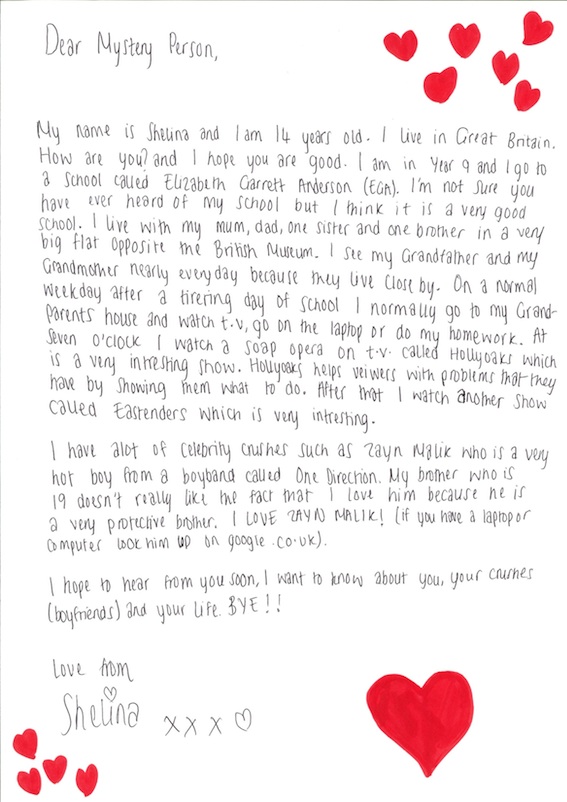 Dear Mystery Person,
My name is Shelina and I am 14 years old. I live in Great Britain.
How are you? and I hope you are good. I am in Year 9 and I go to
a school called Elizabeth Garrett Anderson (EGA). I'm not sure you
have ever heard of my school but I think it is a very good
school. I live with my mum, dad, one sister and one brother in a very
big flat opposite the British Museum. I see my Grandfather and my
Grandmother nearly everyday because they live close by. On a normal
weekday after a tirering day of school I normally go to my Grand-
parents house and watch t.v, go on the laptop or do my homework. At
seven o'clock I watch a soap opera on t.v. called Hollyoaks which
is a very intresting show. Hollyoaks helps veiwers with problems that they
have by showing them what to do. After that I watch another show
called Eastenders which is very intresting.
I have alot of celebrity crushes such as Zayn Malik who is a very
hot boy from a boyband called One Direction. My brother who is
19 doesn't really like the fact that I love him because he is
a very protective brother. I LOVE ZAYN MALIK! (if you have a laptop or
computer look him up on google.co.uk).
I hope to hear from you soon, I want to know about you, your crushes
(boyfriends) and your life. BYE!!
Love from
Shelina x x x ♡